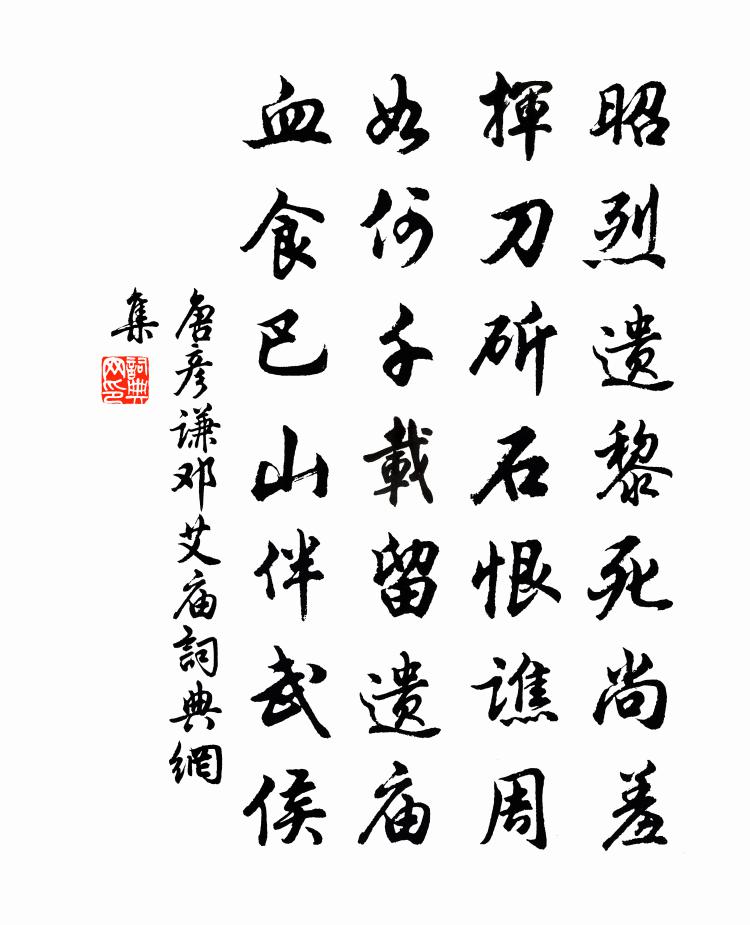 昭烈遗黎死尚羞
揮刀斫石恨譙周
如何千載留遗庙
血食巴山伴武侯
唐彦谦邓艾庙詞典網
集
詞典网印